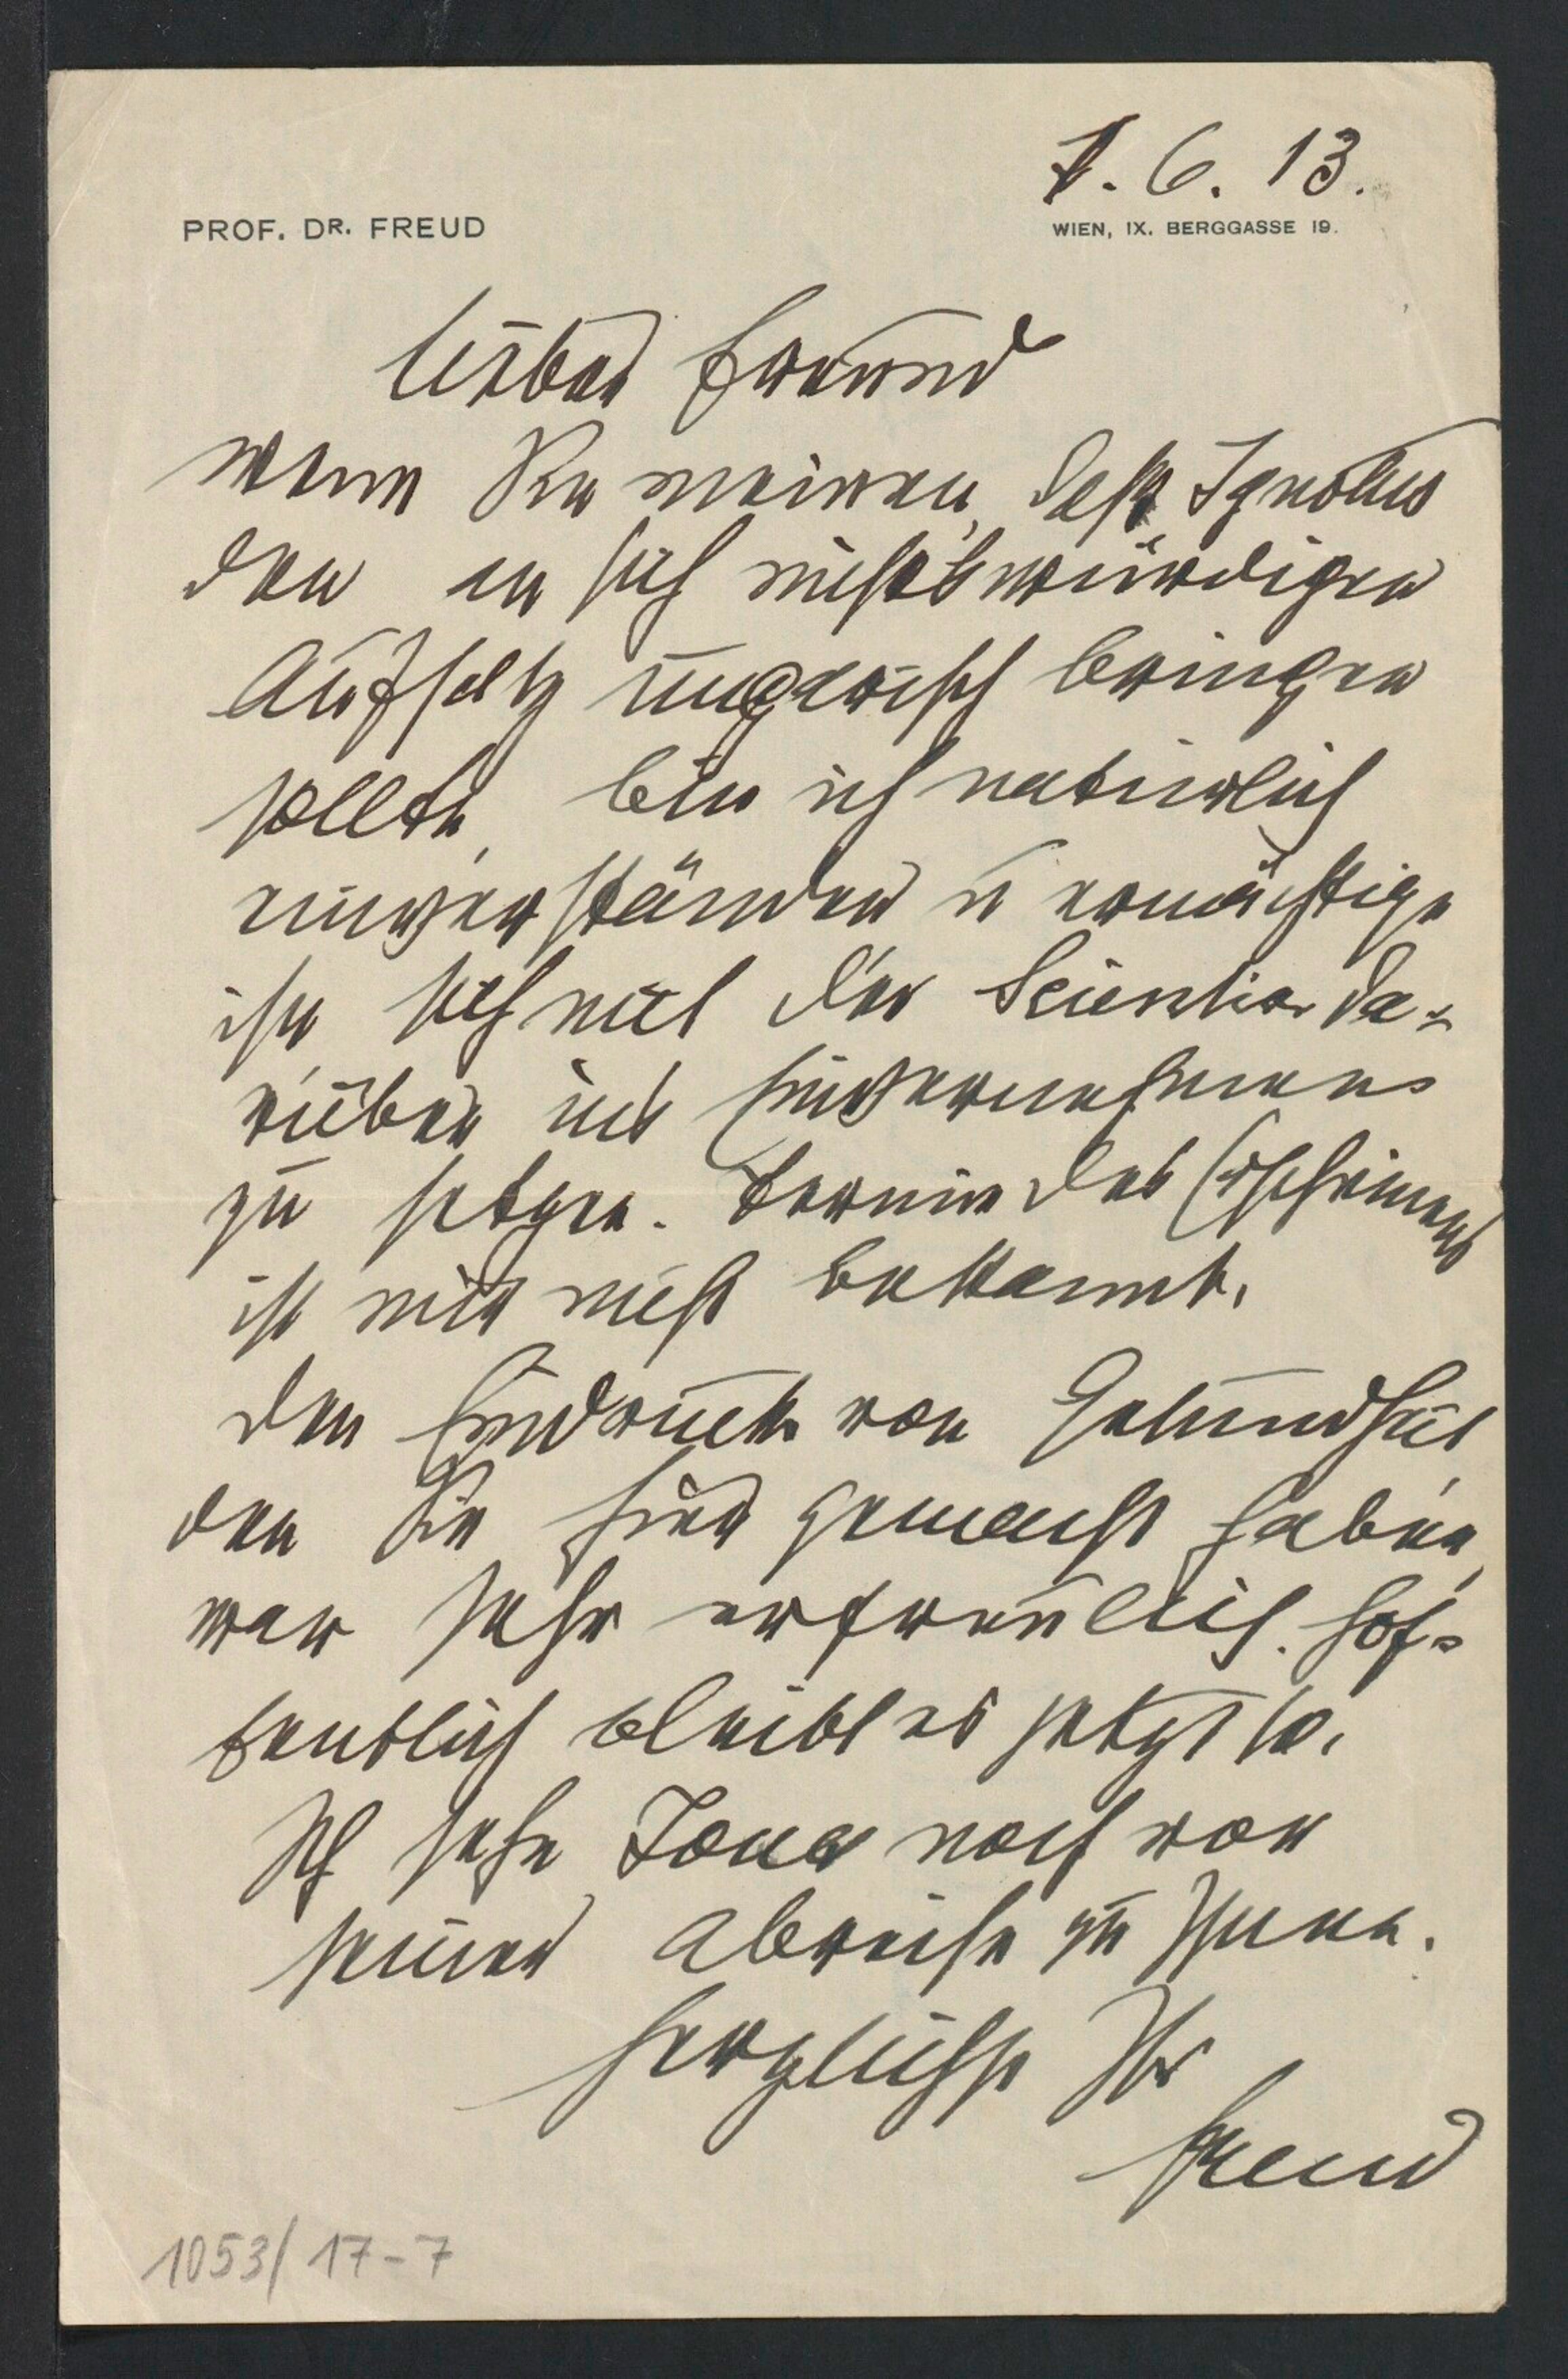 1. 6. 13.
PROF. DR. FREUD
WIEN, IX. BERGGASSE 19.
Lieber Freund
Wenn Sie meinen, daß Ignotus
den an sich nichtswürdigen
Aufsatz ungarisch bringen
sollte, bin ich natürlich
einverstanden u ermächtige
ihn sich mit der Scientia da-
rüber ins Einvernehmen
zu setzen. Termin des Erscheinens
ist mir nicht bekannt.
Den Eindruck von Gesundheit,
den Sie hier gemacht haben,
war sehr erfreulich. Hof-
fentlich bleibt es jetzt so.
Ich sehe Jones noch vor
seiner Abreise zu Ihnen.
Herzlichst Ihr
Freud
1053/17-7